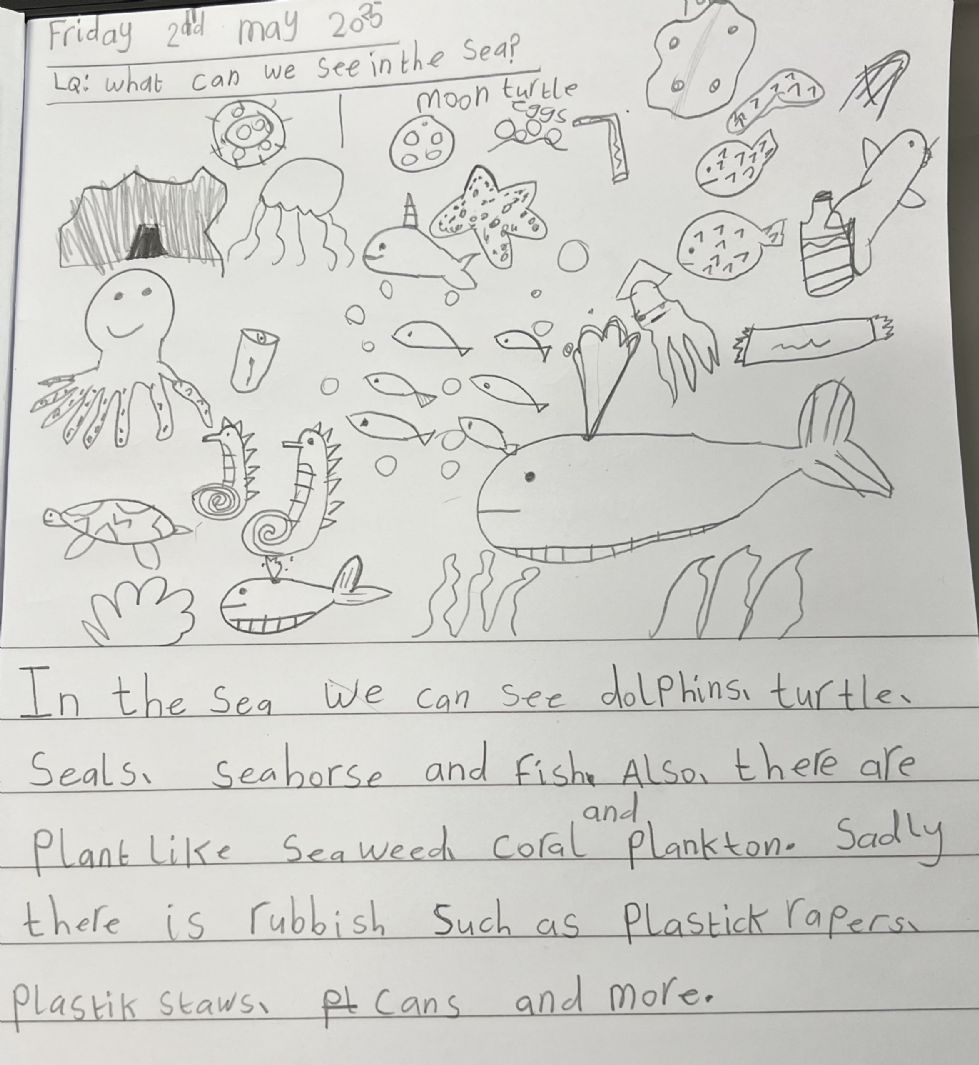 Friday 2nd may 2025
LQ: what can we see in the sea?
moon turtle
eggs
In the sea we can see dolphins, turtle,
Seals, seahorse and fish. Also, there are
and
plant like seaweed, coral plankton. Sadly
there is rubbish such as plastick rapers,
plastik staws, pl cans and more.